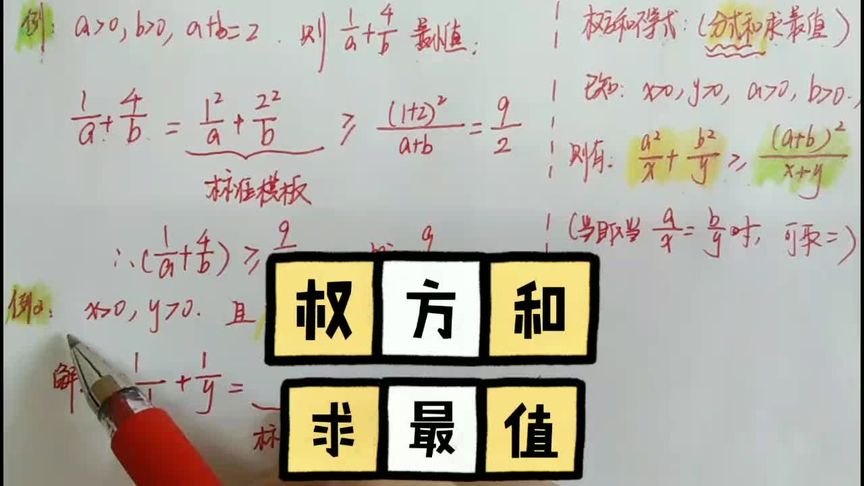 例: a>0, b>0, a+b=2. 则 1/a+4/b 最小值;
1/a+4/b = 1²/a+2²/b ≥ (1+2)²/(a+b) = 9/2
标准模板
∴(1/a+4/b) ≥ 9
例2: x>0, y>0. 且
解
+1/y =
标
权方和不等式: (分式和求最值)
已知: x>0, y>0, a>0, b>0.
则有: a²/x+b²/y ≥ (a+b)²/(x+y)
(当且仅当 a/x=b/y时, 可取=)
权方和
求最值